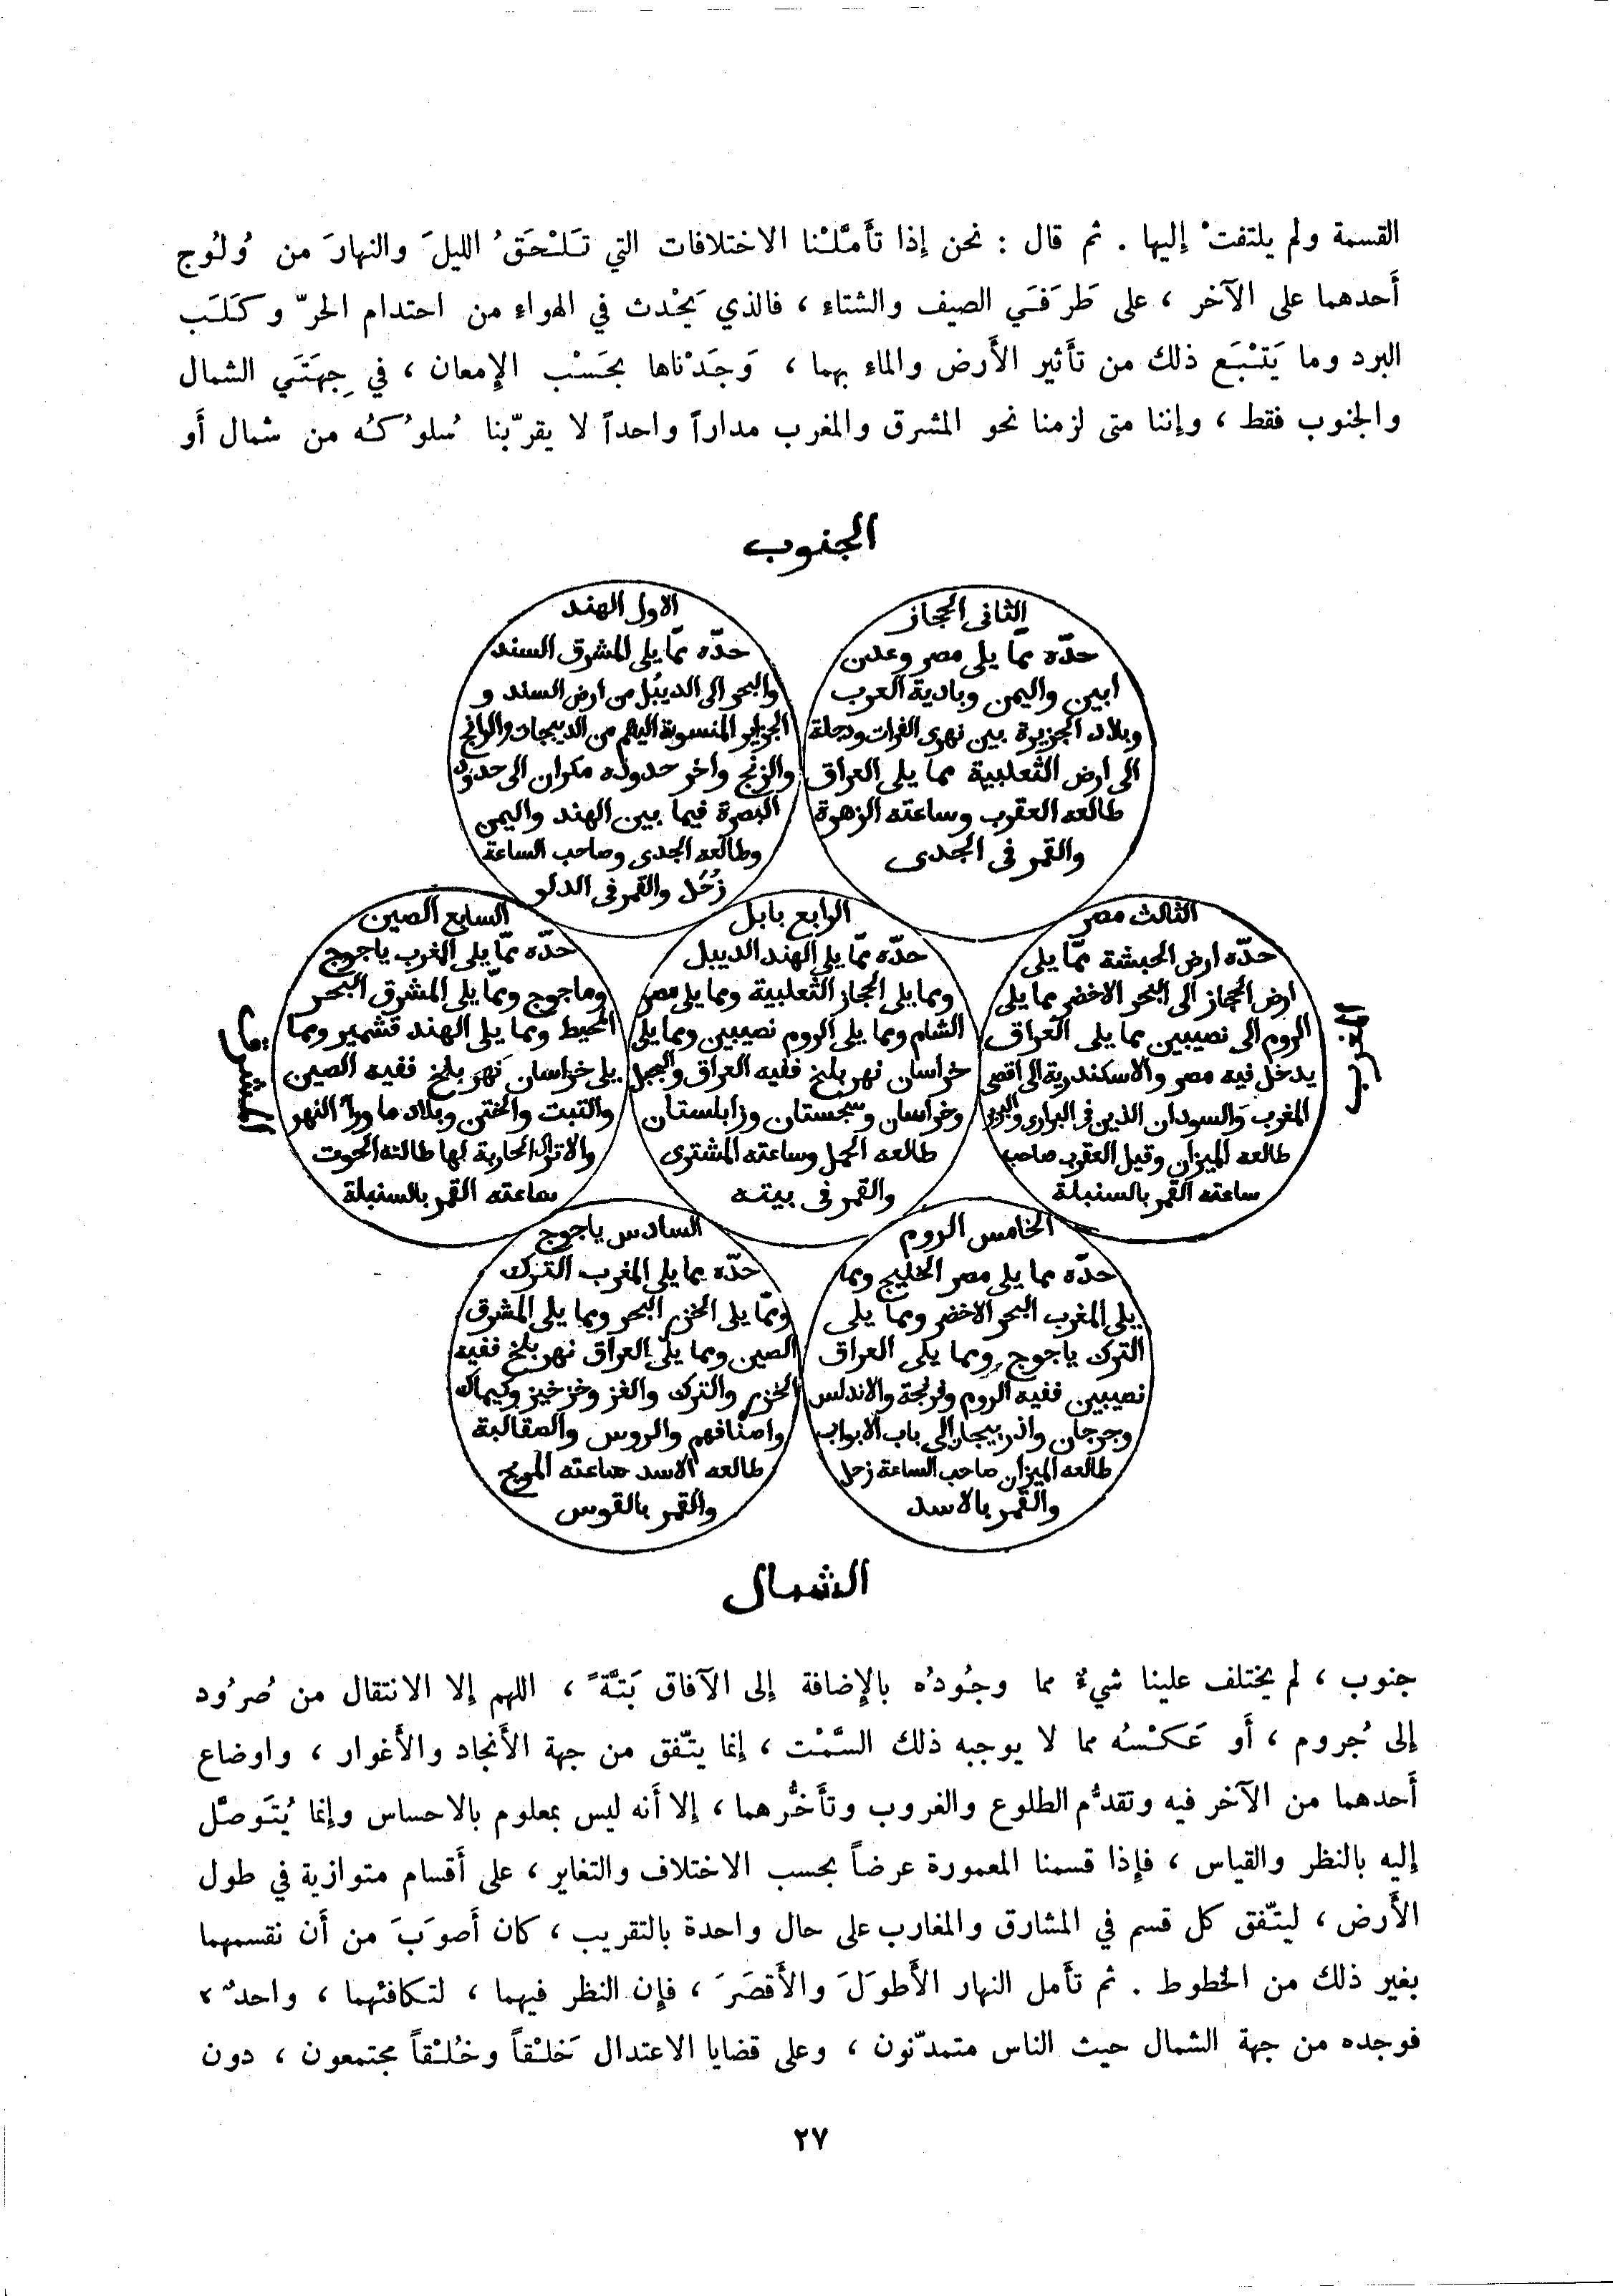 القسمة ولم يلتفتْ إليها . ثم قال : نحن إذا تأَمَّلْنا الاختلافات التي تَلْحَقُ الليلَ والنهارَ من وُلُوج
أَحدهما على الآخر ، على طَرَفَي الصيف والشتاء ، فالذي يَحْدث في الهواء من احتدام الحرّ وكَلَب
البرد وما يَتْبَع ذلك من تأثير الأَرض والماء بهما ، وَجَدْناها بحَسْب الإِمعان ، في جِهَتَي الشمال
والجنوب فقط ، وإننا متى لزمنا نحو المشرق والمغرب مداراً واحداً لا يقرّبنا سُلوكُه من شمال أَو
الجنوب
الثانى الحجاز
حدّه ممّا يلى مصر وعدن
ابين واليمن وبادية العرب
وبلاد الجزيرة بين نهرى الفرات ودجلة
الى ارض الثعلبية مما يلى العراق
طالعه العقرب وساعته الزهرة
والقمر فى الجدى
الاول الهند
حدّه ممّا يلى المشرق السند
والبحر الى الديبُل من ارض السند و
الجزاير المنسوبة اليهم من الديبجات والرانج
والزنج واخر حدوده مكران الى حدود
البصرة فيما بين الهند واليمن
وطالعه الجدى وصاحب الساعة
زُحَل والقمر فى الدلو
المغرب
الثالث مصر
حدّه ارض الحبشة ممّا يلى
ارض الحجاز الى البحر الاخضر مما يلى
الروم الى نصيبين مما يلى العراق
يدخل فيه مصر والاسكندرية الى اقصى
المغرب والسودان الذين فى البرارى
طالعه الميزان وقيل العقرب صاحب
ساعته القمر بالسنبلة
الرابع بابل
حدّه ممّا يلى الهند الديبل
ومما يلى الحجاز الثعلبية ومما يلى مصر
الشام ومما يلى الروم نصيبين ومما يلى
خراسان نهر بلخ ففيه العراق والجبل
وخراسان وسجستان وزابلستان
طالعه الحمل وساعته المشترى
والقمر فى بيته
السابع الصين
حدّه ممّا يلى الغرب ياجوج
وماجوج وممّا يلى المشرق البحر
المحيط ومما يلى الهند قشمير ومما
يلى خراسان نهر بلخ ففيه الصين
والتبت والختن وبلاد ما وراء النهر
والاتراك المحاربة لها طالعه الحوت
ساعته القمر بالسنبلة
المشرق
الخامس الروم
حدّه مما يلى مصر الخليج ومما
يلى المغرب البحر الاخضر ومما يلى
الترك ياجوج ومما يلى العراق
نصيبين ففيه الروم وفرنجة والاندلس
وجرجان واذربيجان الى باب الابواب
طالعه الميزان صاحب الساعة زحل
والقمر بالاسد
السادس ياجوج
حدّه مما يلى المغرب الترك
وممّا يلى الخزر البحر ومما يلى المشرق
الصين ومما يلى العراق نهر بلخ ففيه
الخزر والترك والغز وخرخيز وكيماك
واصنافهم والروس والصقالبة
طالعه الاسد ساعته المريخ
والقمر بالقوس
الشمال
جنوب ، لم يختلف علينا شيءٌ مما وجُودُه بالإِضافة إلى الآفاق بَتَّةً ، اللهم إلا الانتقال من صُرُود
إلى جُروم ، أَو عَكْسُه مما لا يوجبه ذلك السَّمْت ، إنما يتّفق من جهة الأَنجاد والأَغوار ، واوضاع
أَحدهما من الآخر فيه وتقدُّم الطلوع والغروب وتأَخُّرهما ، إلا أَنه ليس بمعلوم بالاحساس وإنما يُتَوصَّل
إليه بالنظر والقياس ، فإِذا قسمنا المعمورة عرضاً بحسب الاختلاف والتغاير ، على أَقسام متوازية في طول
الأَرض ، ليتّفق كل قسم في المشارق والمغارب على حال واحدة بالتقريب ، كان أَصوَبَ من أَن نقسمهما
بغير ذلك من الخطوط . ثم تأَمل النهار الأَطوَلَ والأَقصَرَ ، فإِن النظر فيهما ، لتكافئهما ، واحدٌ ،
فوجده من جهة الشمال حيث الناس متمدّنون ، وعلى قضايا الاعتدال خَلْقاً وخُلْقاً مجتمعون ، دون
٢٧